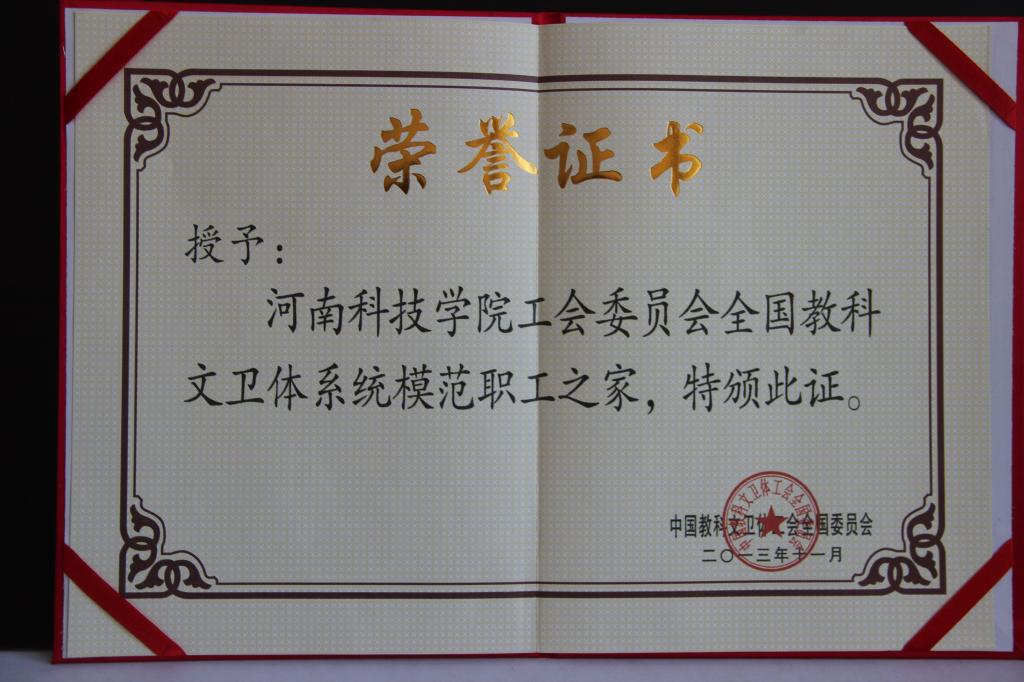 荣誉证书
授予：
河南科技学院工会委员会全国教科
文卫体系统模范职工之家，特颁此证。
中国教科文卫体工会全国委员会
二〇一三年十一月